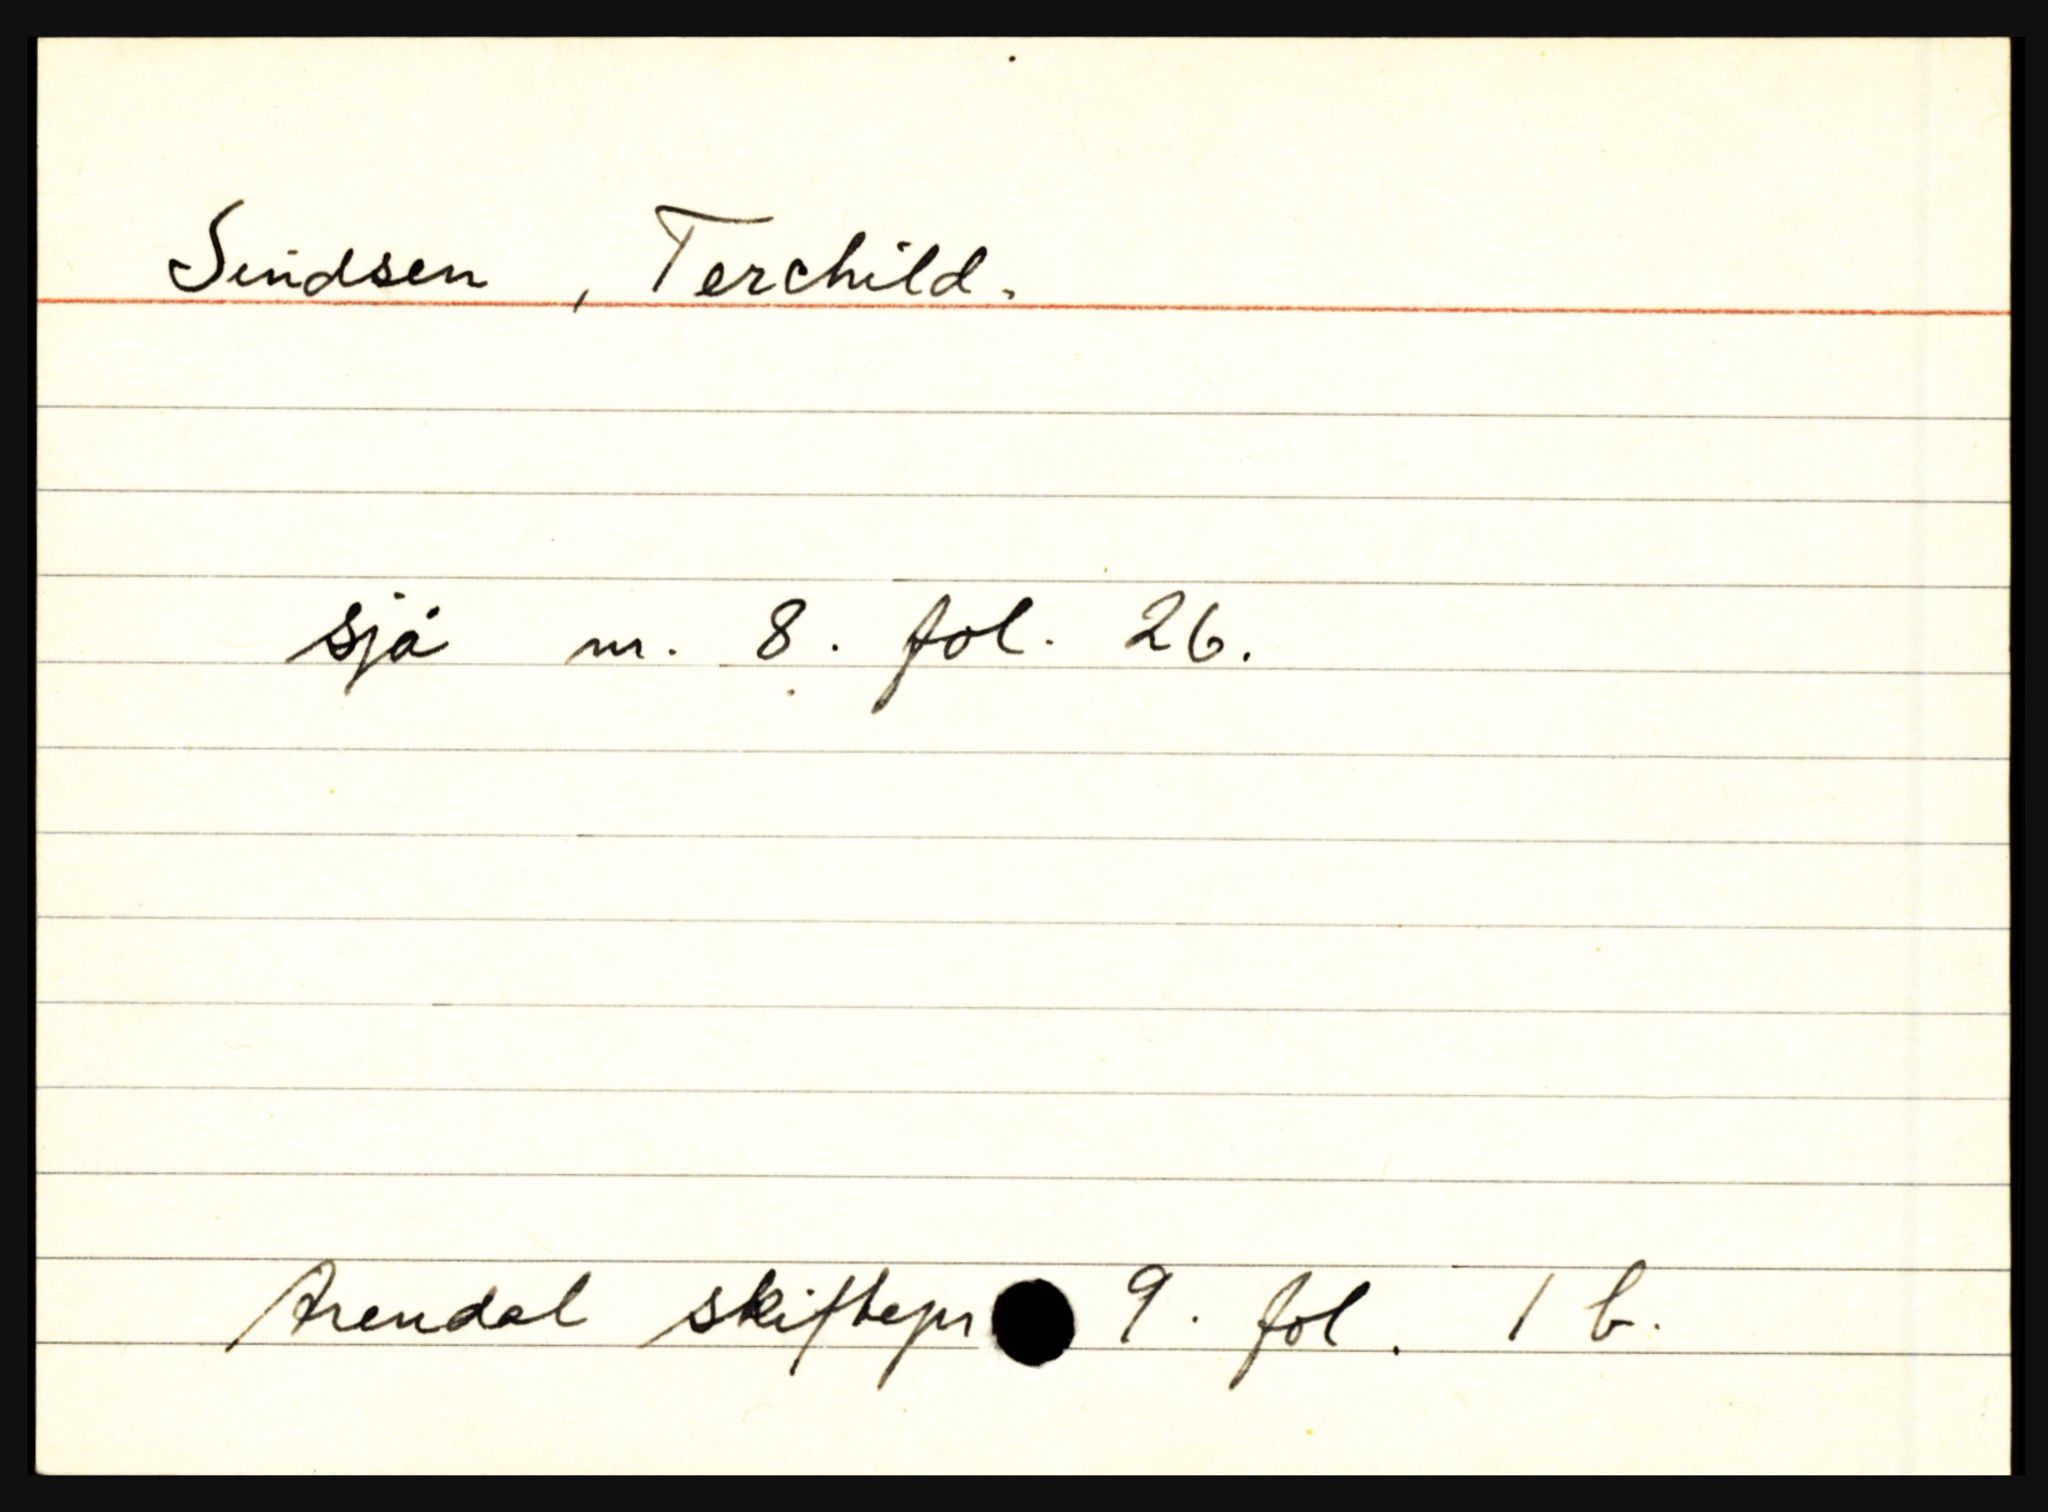 Sindsen, Terchild.
sjå nr. 8. fol. 26.
Arendal skiftepr 9. fol. 1 b.